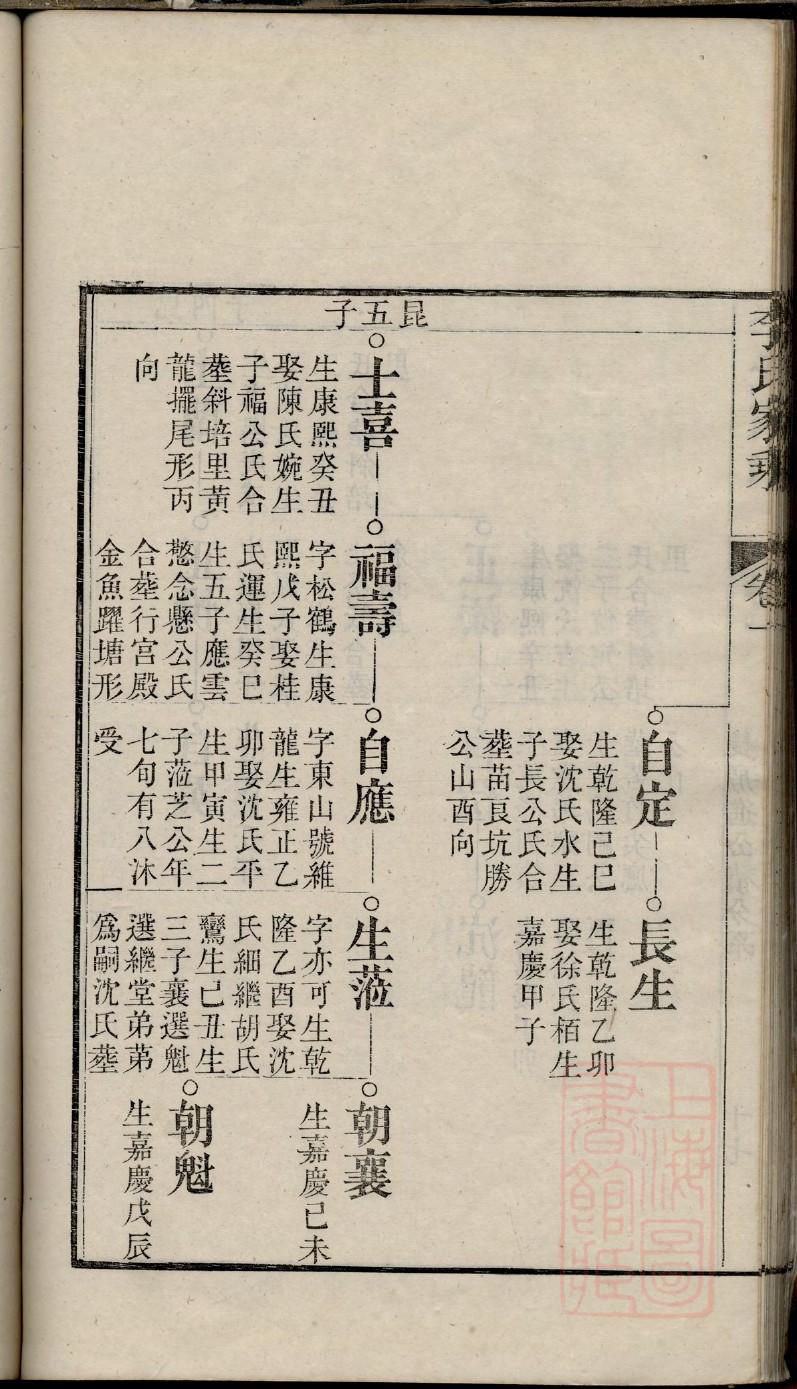 李氏家乘
卷一
自定
生乾隆己巳
娶沈氏水生
子長公氏合
塟苗良坑勝
公山酉向
長生
生乾隆乙卯
娶徐氏栢生
嘉慶甲子
昆五子
士喜
生康熙癸丑
娶陳氏婉生
子福公氏合
塟斜培里黃
龍擺尾形丙
向
福壽
字松鶴生康
熙戊子娶桂
氏運生癸巳
生五子應雲
慗念懸公氏
合塟行宮殿
金魚躍塘形
自應
字東山號維
龍生雍正乙
卯娶沈氏平
生甲寅生二
子蒞芝公年
七旬有八沐
受
生蒞
字亦可生乾
隆乙酉娶沈
氏細繼胡氏
鸞生己丑生
三子襄選魁
選繼堂弟苐
爲嗣沈氏塟
朝襄
生嘉慶己未
朝魁
生嘉慶戊辰
上海圖
書館藏